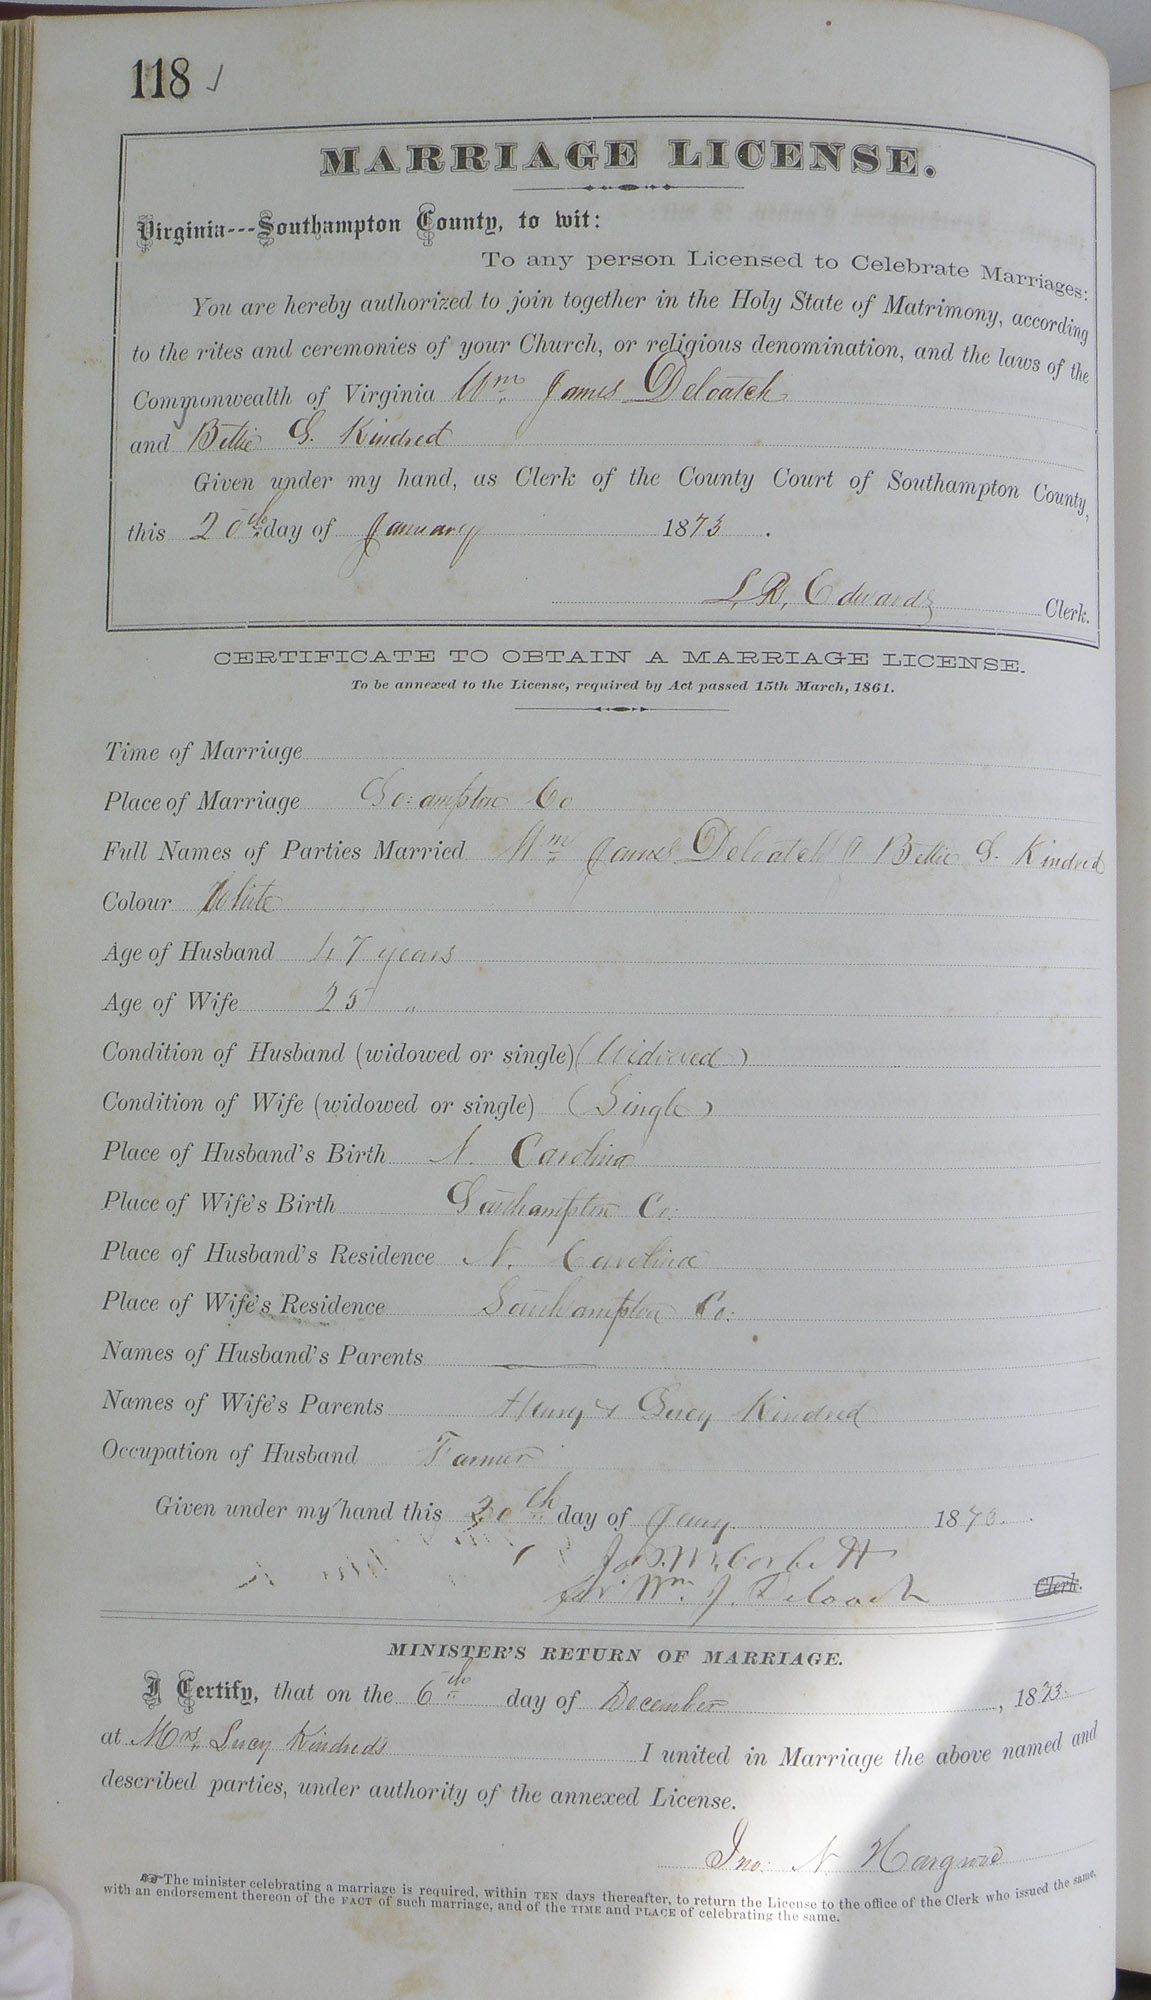 118 ✓
MARRIAGE LICENSE.
Virginia---Southampton County, to wit:
To any person Licensed to Celebrate Marriages:
You are hereby authorized to join together in the Holy State of Matrimony, according
to the rites and ceremonies of your Church, or religious denomination, and the laws of the
Commonwealth of Virginia Wm. James Deloatch
and Bettie S. Kindred
Given under my hand, as Clerk of the County Court of Southampton County,
this 20th day of January 1873.
L. R. Edwards Clerk.
CERTIFICATE TO OBTAIN A MARRIAGE LICENSE.
To be annexed to the License, required by Act passed 15th March, 1861.
Time of Marriage
Place of Marriage So:ampton Co
Full Names of Parties Married Wm. James Deloatch & Bettie S. Kindred
Colour White
Age of Husband 47 years
Age of Wife 25 "
Condition of Husband (widowed or single) (Widowed)
Condition of Wife (widowed or single) (Single)
Place of Husband's Birth N. Carolina
Place of Wife's Birth Southampton Co:
Place of Husband's Residence N. Carolina
Place of Wife's Residence Southampton Co:
Names of Husband's Parents —
Names of Wife's Parents Henry & Lucy Kindred
Occupation of Husband Farmer
Given under my hand this 20th day of Jany 1873.
Corbett
for Wm. J. Deloach Clerk.
MINISTER'S RETURN OF MARRIAGE.
I Certify, that on the 6th day of December, 1873.
at Mrs. Lucy Kindred's I united in Marriage the above named and
described parties, under authority of the annexed License.
Jno: N. Hargrave
☞The minister celebrating a marriage is required, within TEN days thereafter, to return the License to the office of the Clerk who issued the same,
with an endorsement thereon of the FACT of such marriage, and of the TIME and PLACE of celebrating the same.